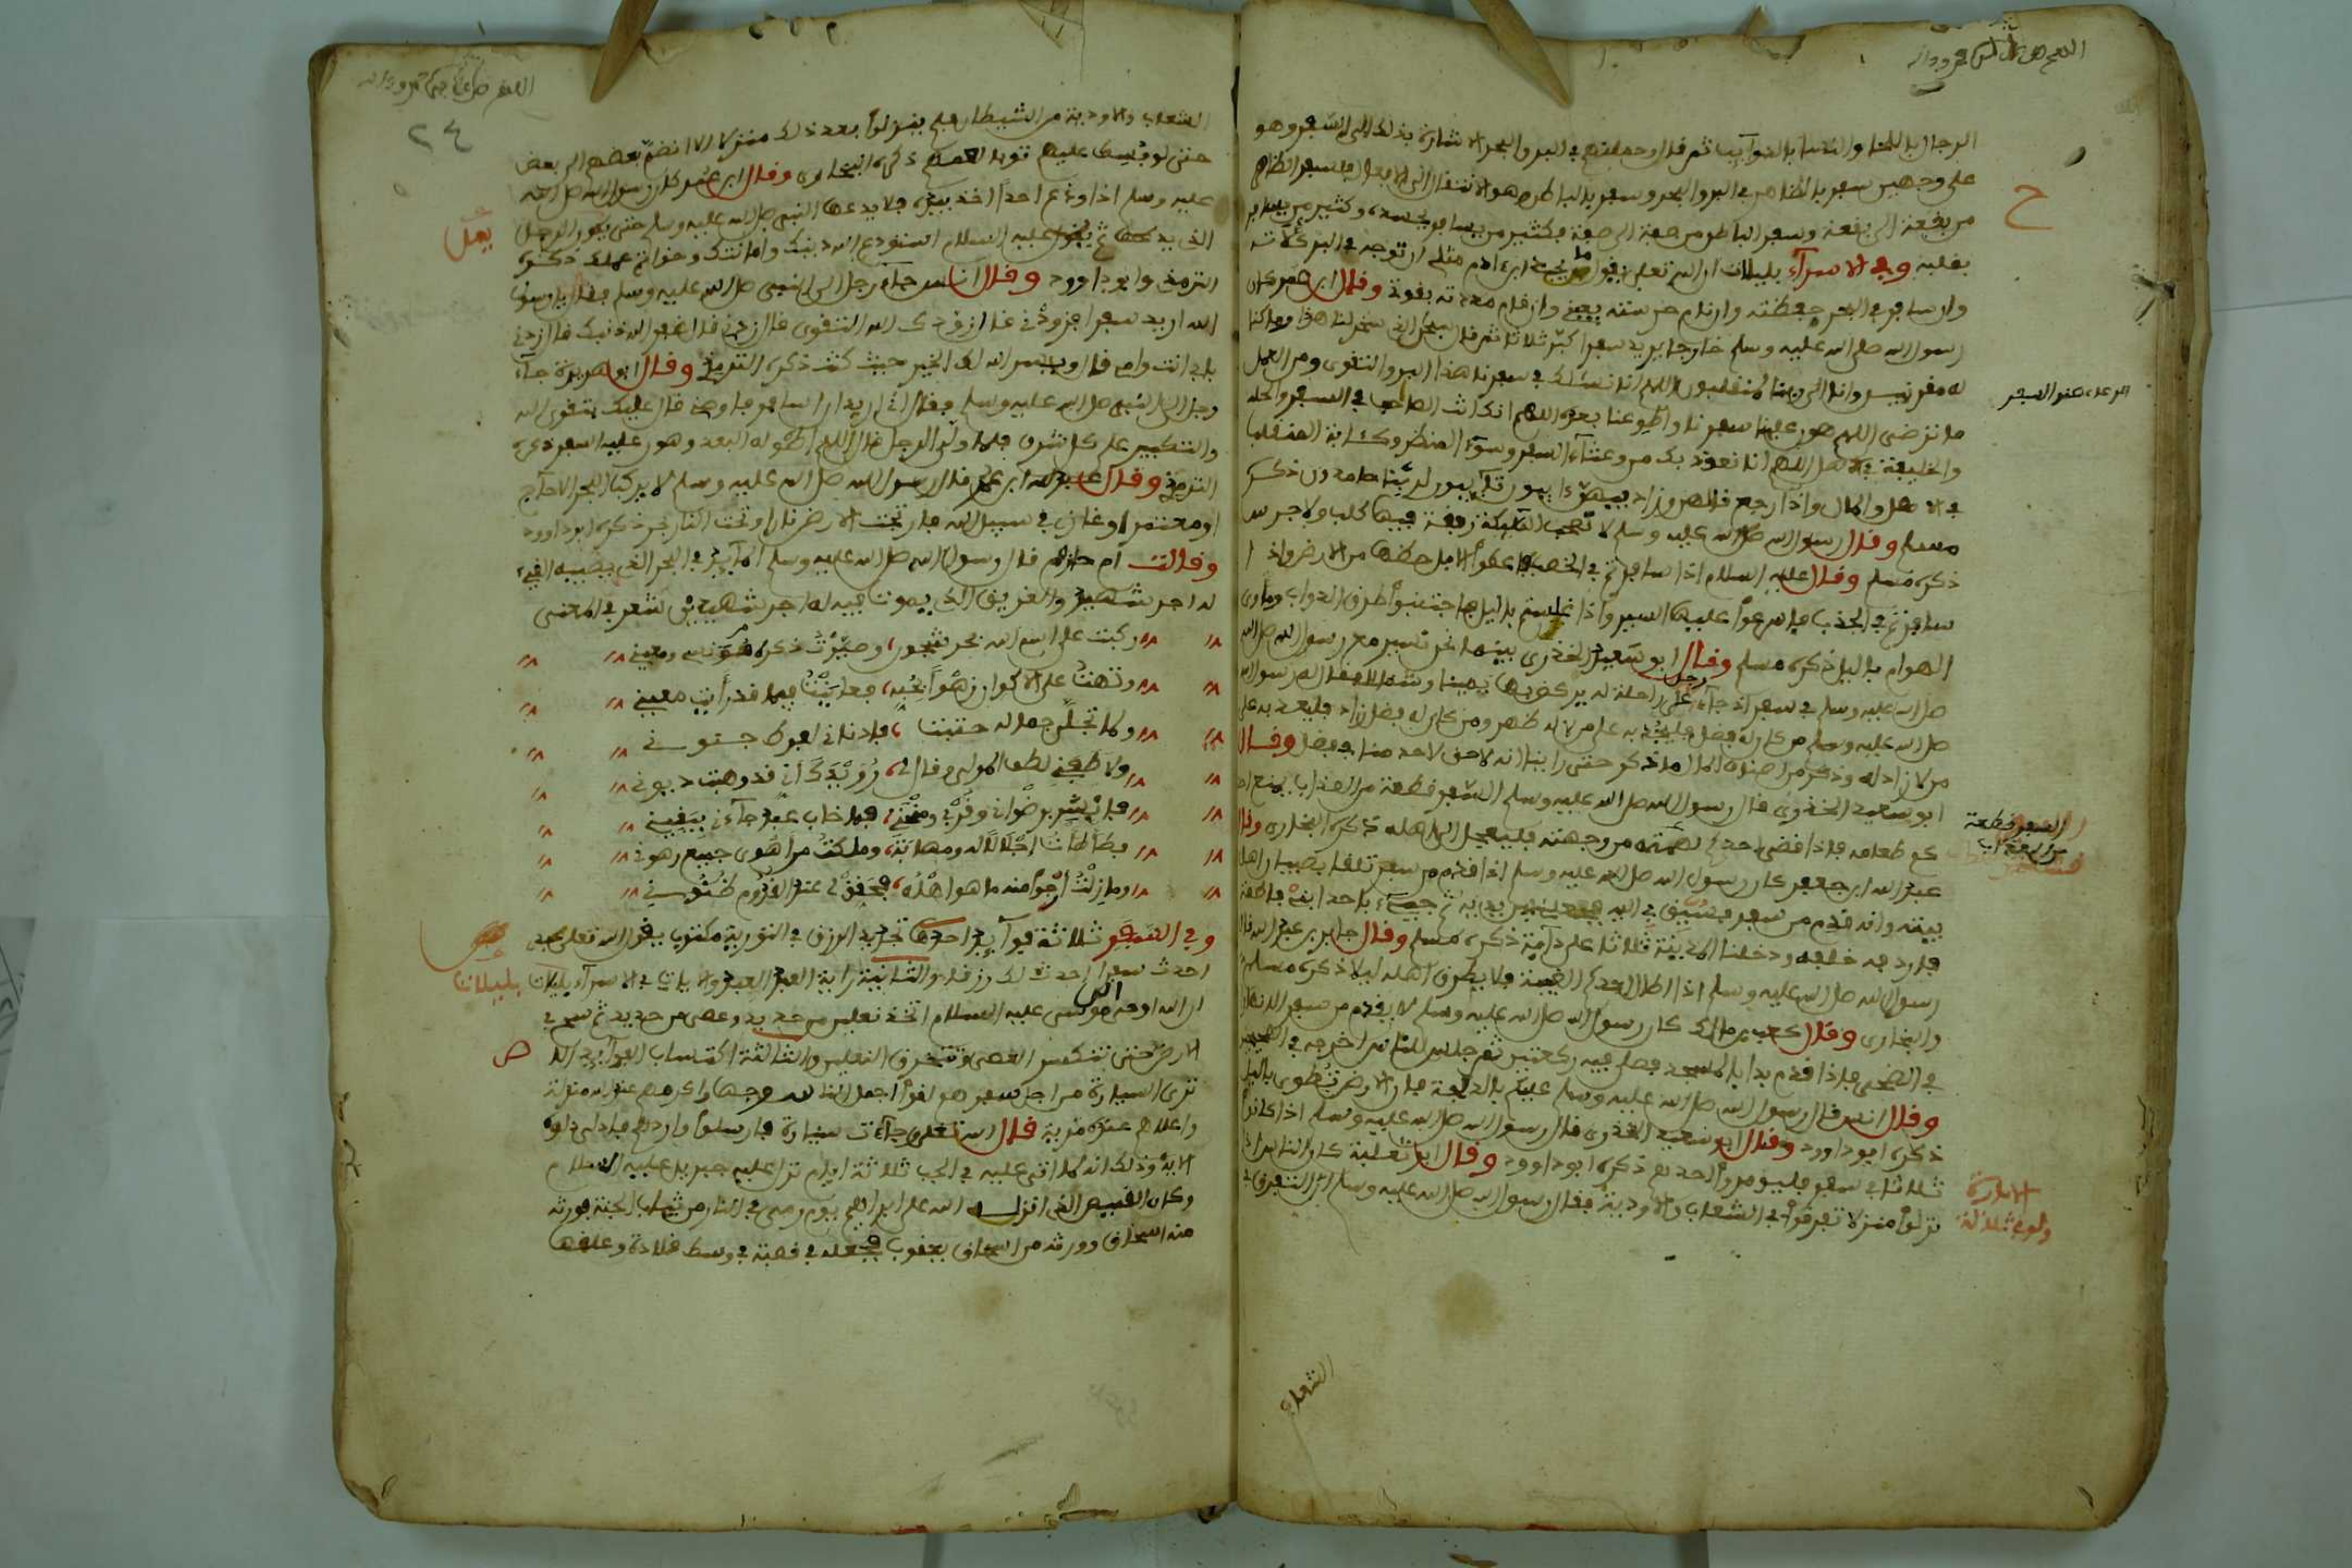 الرجال باللحا والنساء بالذوآيب ثم قال وحملنهم في البر والبحر الاشارة بذلك الى السفر وهو
على وجهين سفر بالظاهر في البر والبحر وسفر بالباطن وهو الانتقال الى الافعال فسفر الظاهر
من بقعة الى بقعة وسفر الباطن من صفة الى صفة فكثير من يسافر بجسده وكثير من يسافر
بقلبه وفي الاسرآء بليلات ان الله تعلى يقول ما يحبني ابن ءادم مثلي ان توجه في البر كلاته
وان سافر في البحر حفظته وان نام حرسته بعيني وان قام مددته بقوة وقال ابن عمر كان
رسول الله صلى الله عليه وسلم خارجا يريد سفرا كبر ثلاثا ثم قال سبحن الذي سخر لنا هذا وما كنا
له مقرنين وانا الى ربنا لمنقلبون اللهم انا نسئلك في سفرنا هذا البر والتقوى ومن العمل
ما ترضى اللهم هون علينا سفرنا واطو عنا بعده اللهم انك انت الصاحب في السفر
والخليفة في الاهل اللهم انا نعوذ بك من وعثآء السفر وسوء المنظر وكئابة المنقلب
في الاهل والمال واذا رجع قالهن وزاد فيهن ءايبون تآيبون لربنا حامدون ذكره
مسلم وقال رسول الله صلى الله عليه وسلم لا تصحب الملائكة رفقة فيها كلب ولا جرس
ذكره مسلم وقال عليه السلام اذا سافرتم في الخصب فاعطوا الابل حظها من الارض واذا
سافرتم في الجدب فاسرعوا عليها السير واذا عرستم بالليل فاجتنبوا طرق الدواب وماوى
الهوام بالليل ذكره مسلم وقال ابو سعيد الخدري بينما نحن نسير مع رسول الله صلى الله
صلى الله عليه وسلم في سفر اذ جآء رجل على راحلة له يركض بها يمينا وشمالا فقال له رسول الله
صلى الله عليه وسلم من كان له فضل فليعد به على من لا له ظهر ومن كان له فضل زاد فليعد به على
من لا زاد له وذكر من اصناف المال ما ذكر حتى راينا انه لا حق لاحد منا في فضل وقال
ابو سعيد الخدري قال رسول الله صلى الله عليه وسلم السفر قطعة من العذاب يمنع احد
كم طعامه فاذا قضى احدكم نهمته من وجهته فليعجل الى اهله ذكره البخاري وقال
عبد الله ابن جعفر كان رسول الله صلى الله عليه وسلم اذا قدم من سفر تلقا بصبيان اهل
بيته وانه قدم من سفر فسبق بي اليه فجعلني بين يديه ثم جيء باحد ابني فاطمة
فاردفه خلفه ودخلنا المدينة ثلاثا على دآبة ذكره مسلم وقال جابر بن عبد الله قال
رسول الله صلى الله عليه وسلم اذا اطال احدكم الغيبة فلا يطرق اهله ليلا ذكره مسلم
والبخاري وقال كعب بن مالك كان رسول الله صلى الله عليه وسلم لا يقدم من سفر الا نهارا
في الضحى فاذا قدم بدا بالمسجد فصلى فيه ركعتين ثم جلس للناس اخرجه في الصحيحين
وقال انس قال رسول الله صلى الله عليه وسلم عليكم بالدلجة فان الارض تطوى بالليل
ذكره ابو داوود وقال ابو سعيد الخدري قال رسول الله صلى الله عليه وسلم اذا كانوا
ثلاثا في سفر فليومروا احدهم ذكره ابو داوود وقال ابو ثعلبة كان الناس اذا
نزلوا منزلا تفرقوا في الشعاب والاودية فقال رسول الله صلى الله عليه وسلم ان التفرق في
ح
الدعاء عند السفر
السفر قطعة
من العذاب
الامارة
ولو في ثلاثة
الشعاب
٢٤
الشعاب والاودية من الشيطان فلم ينزلوا بعد ذلك منزلا الا انضم بعضهم الى بعض
حتى لو بسط عليهم ثوبا لعمهم ذكره البخاري وقال ابن عمر كان رسول الله صلى الله
عليه وسلم اذا ودع احدا اخذ بيده فلا يدعها النبي صلى الله عليه وسلم حتى يكون الرجل
الذي يدعها ثم يقول عليه السلام استودع الله دينك وامانتك وخواتم عملك ذكره
الترمذي وابو داوود وقال انس جآء رجل الى النبي صلى الله عليه وسلم فقال يا رسول
الله اريد سفرا فزودني قال زودك الله التقوى قال زدني قال غفر الله ذنبك قال زدني
بابي انت وامي قال ويسر الله لك الخير حيث كنت ذكره الترمذي وقال ابو هريرة جآء
رجل الى النبي صلى الله عليه وسلم فقال اني اريد ان اسافر فاوصني قال عليك بتقوى الله
والتكبير على كل شرف فلما ولى الرجل قال اللهم اطو له البعد وهون عليه السفر ذكره
الترمذي وقال عبد الله ابن عمر قال رسول الله صلى الله عليه وسلم لا يركب البحر الا حآج
او معتمر او غاز في سبيل الله فان تحت الارض نارا وتحت النار بحر ذكره ابو داوود
وقالت ام حرام قال رسول الله صلى الله عليه وسلم المآيد في البحر الذي يصيبه القيء
له اجر شهيد والغريق الذي يموت فيه له اجر شهيدين شعر في المعنى
ركبت على اسم الله بحر شجوني وصيرت ذكره مونسي ومعيني
وتهت على الاكوان زهوا بحبه فعاينت فيما قد رأيت معيني
وكما تجلى جماله حقيقتا فادناني لفرط جنوني
ولاطفني لطف الموالي وقال لي رويدك اني قد وهبت ديوني
فابشر برضواني وقربي ومنتي فما خاب عبد جآءني بيقيني
فطأطأت اجلالا له ومهابة وملكت من اهوى جميع رهوني
وما زلت ارجوا منه ما هو اهله فحقق لي عند القدوم ظنوني
وفي السفر ثلاثة فوآيد احدها تجديد الرزق في التورية مكتوب يقول الله تعلى عبدي
احدث سفرا احدث لك رزقا والثانية زاية العبر العبر والايات في الاسرآء بليلات
ان الله اوحى الى موسى عليه السلام اتخذ نعلين من حديد وعصى من حديد ثم سح في
الارض حتى تنكسر العصى وتتخرق النعلين والثالثة اكتساب الفوآيد الا
ترى السيارة من اجل سفرهم لقوا اجمل الناس وجها واكرمهم عند الله منزلة
واعلاهم عنده مزية قال الله تعلى وجآءت سيارة فارسلوا واردهم فادلى دلوه
الاية وذلك انه لما اتى عليه في الجب ثلاثة ايام نزل عليه جبريل عليه السلام
وكان القميص الذي انزله الله على ابراهيم يوم رمي في النار من ثياب الجنة فورثه
منه اسحاق وورثه من اسحاق يعقوب فجعله في قصبة في وسط قلادة وعلقها
بليلات
ص